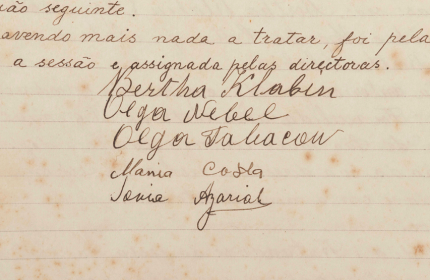 são seguinte.
avendo mais nada a tratar, foi pela
a sessão e assignada pelas directoras.
Bertha Klabin
Olga Nebel
Olga Tabacow
Mania Costa
Sonia Azariah